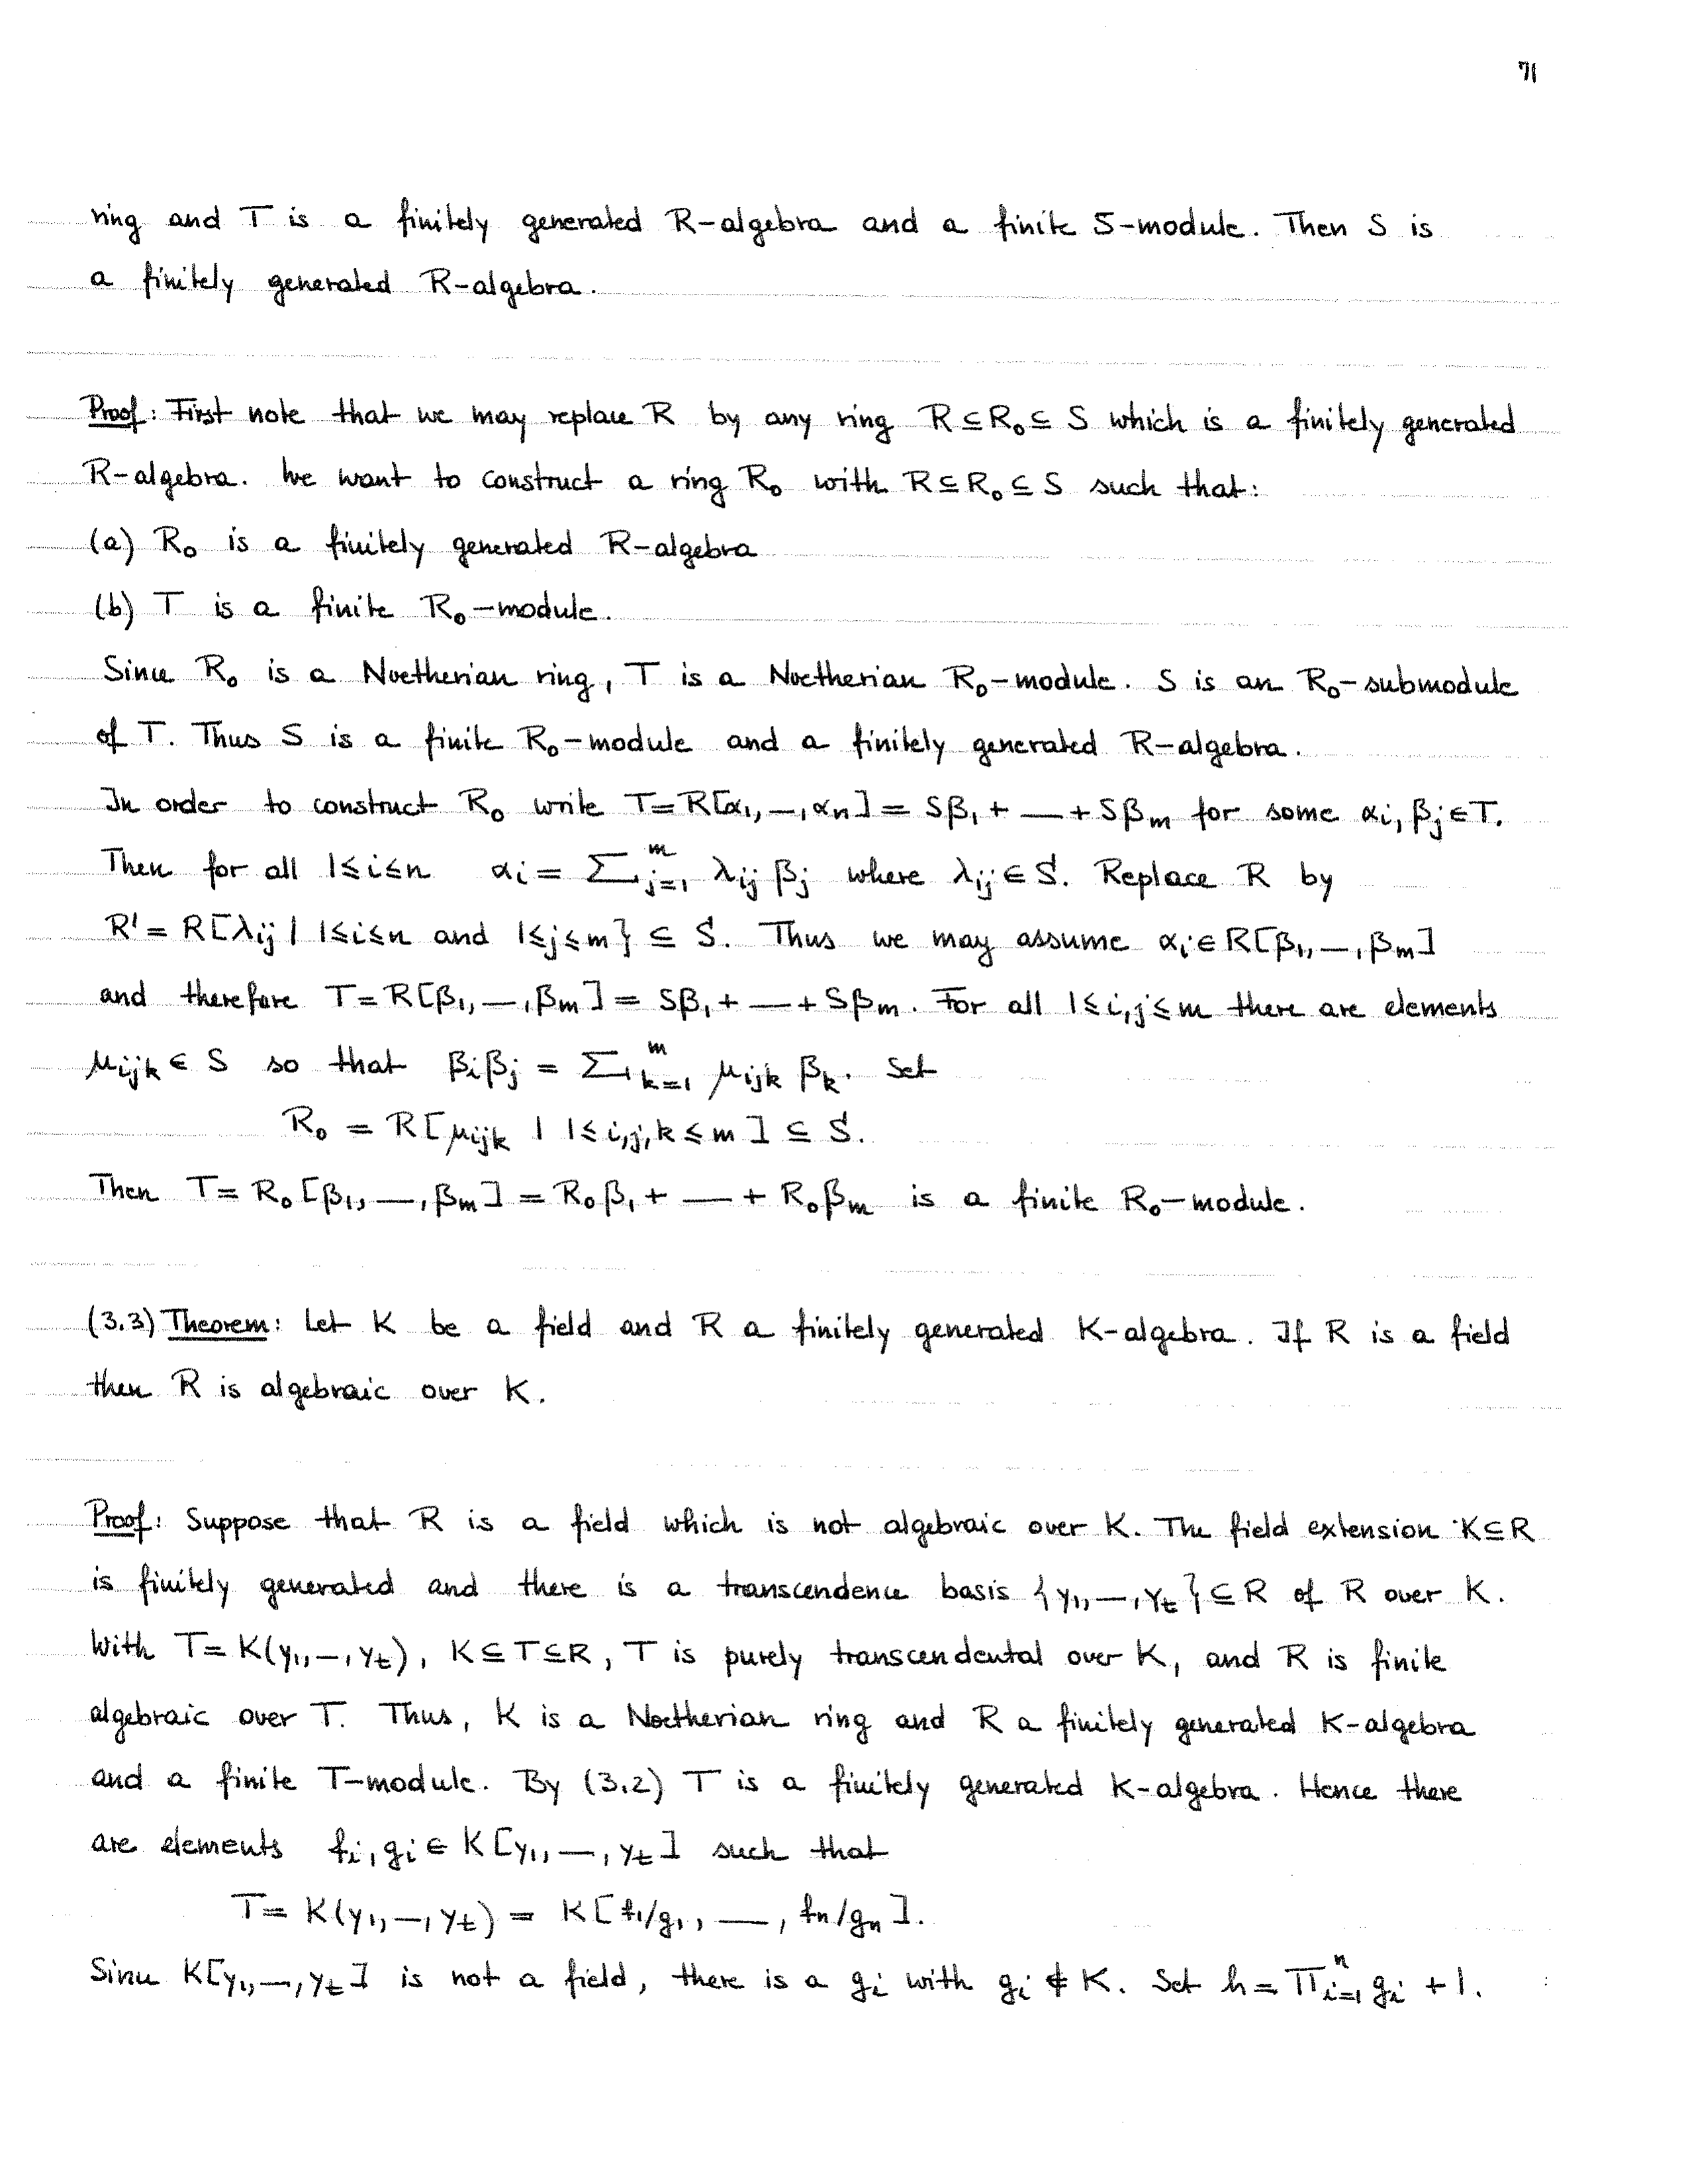 71
ring and T is a finitely generated R-algebra and a finite S-module. Then S is
a finitely generated R-algebra.
Proof: First note that we may replace R by any ring R ⊆ R₀ ⊆ S which is a finitely generated
R-algebra. We want to construct a ring R₀ with R ⊆ R₀ ⊆ S such that:
(a) R₀ is a finitely generated R-algebra
(b) T is a finite R₀-module.
Since R₀ is a Noetherian ring, T is a Noetherian R₀-module. S is an R₀-submodule
of T. Thus S is a finite R₀-module and a finitely generated R-algebra.
In order to construct R₀ write T = R[α₁, —, αₙ] = Sβ₁ + — + Sβₘ for some αᵢ, βⱼ ∈ T.
Then for all 1 ≤ i ≤ n αᵢ = ∑ⱼ₌₁ᵐ λᵢⱼ βⱼ where λᵢⱼ ∈ S. Replace R by
R' = R[λᵢⱼ | 1 ≤ i ≤ n and 1 ≤ j ≤ m} ⊆ S. Thus we may assume αᵢ ∈ R[β₁, —, βₘ]
and therefore T = R[β₁, —, βₘ] = Sβ₁ + — + Sβₘ. For all 1 ≤ i,j ≤ m there are elements
μᵢⱼₖ ∈ S so that βᵢβⱼ = ∑ₖ₌₁ᵐ μᵢⱼₖ βₖ. Set
R₀ = R[μᵢⱼₖ | 1 ≤ i,j,k ≤ m] ⊆ S.
Then T = R₀[β₁, —, βₘ] = R₀β₁ + — + R₀βₘ is a finite R₀-module.
(3.3) Theorem: Let K be a field and R a finitely generated K-algebra. If R is a field
then R is algebraic over K.
Proof: Suppose that R is a field which is not algebraic over K. The field extension K ⊆ R
is finitely generated and there is a transcendence basis {y₁, —, yₜ} ⊆ R of R over K.
With T = K(y₁, —, yₜ), K ⊆ T ⊆ R, T is purely transcendental over K, and R is finite
algebraic over T. Thus, K is a Noetherian ring and R a finitely generated K-algebra
and a finite T-module. By (3.2) T is a finitely generated K-algebra. Hence there
are elements fᵢ, gᵢ ∈ K[y₁, —, yₜ] such that
T = K(y₁, —, yₜ) = K[f₁/g₁, —, fₙ/gₙ].
Since K[y₁, —, yₜ] is not a field, there is a gᵢ with gᵢ ∉ K. Set h = ∏ᵢ₌₁ⁿ gᵢ + 1.